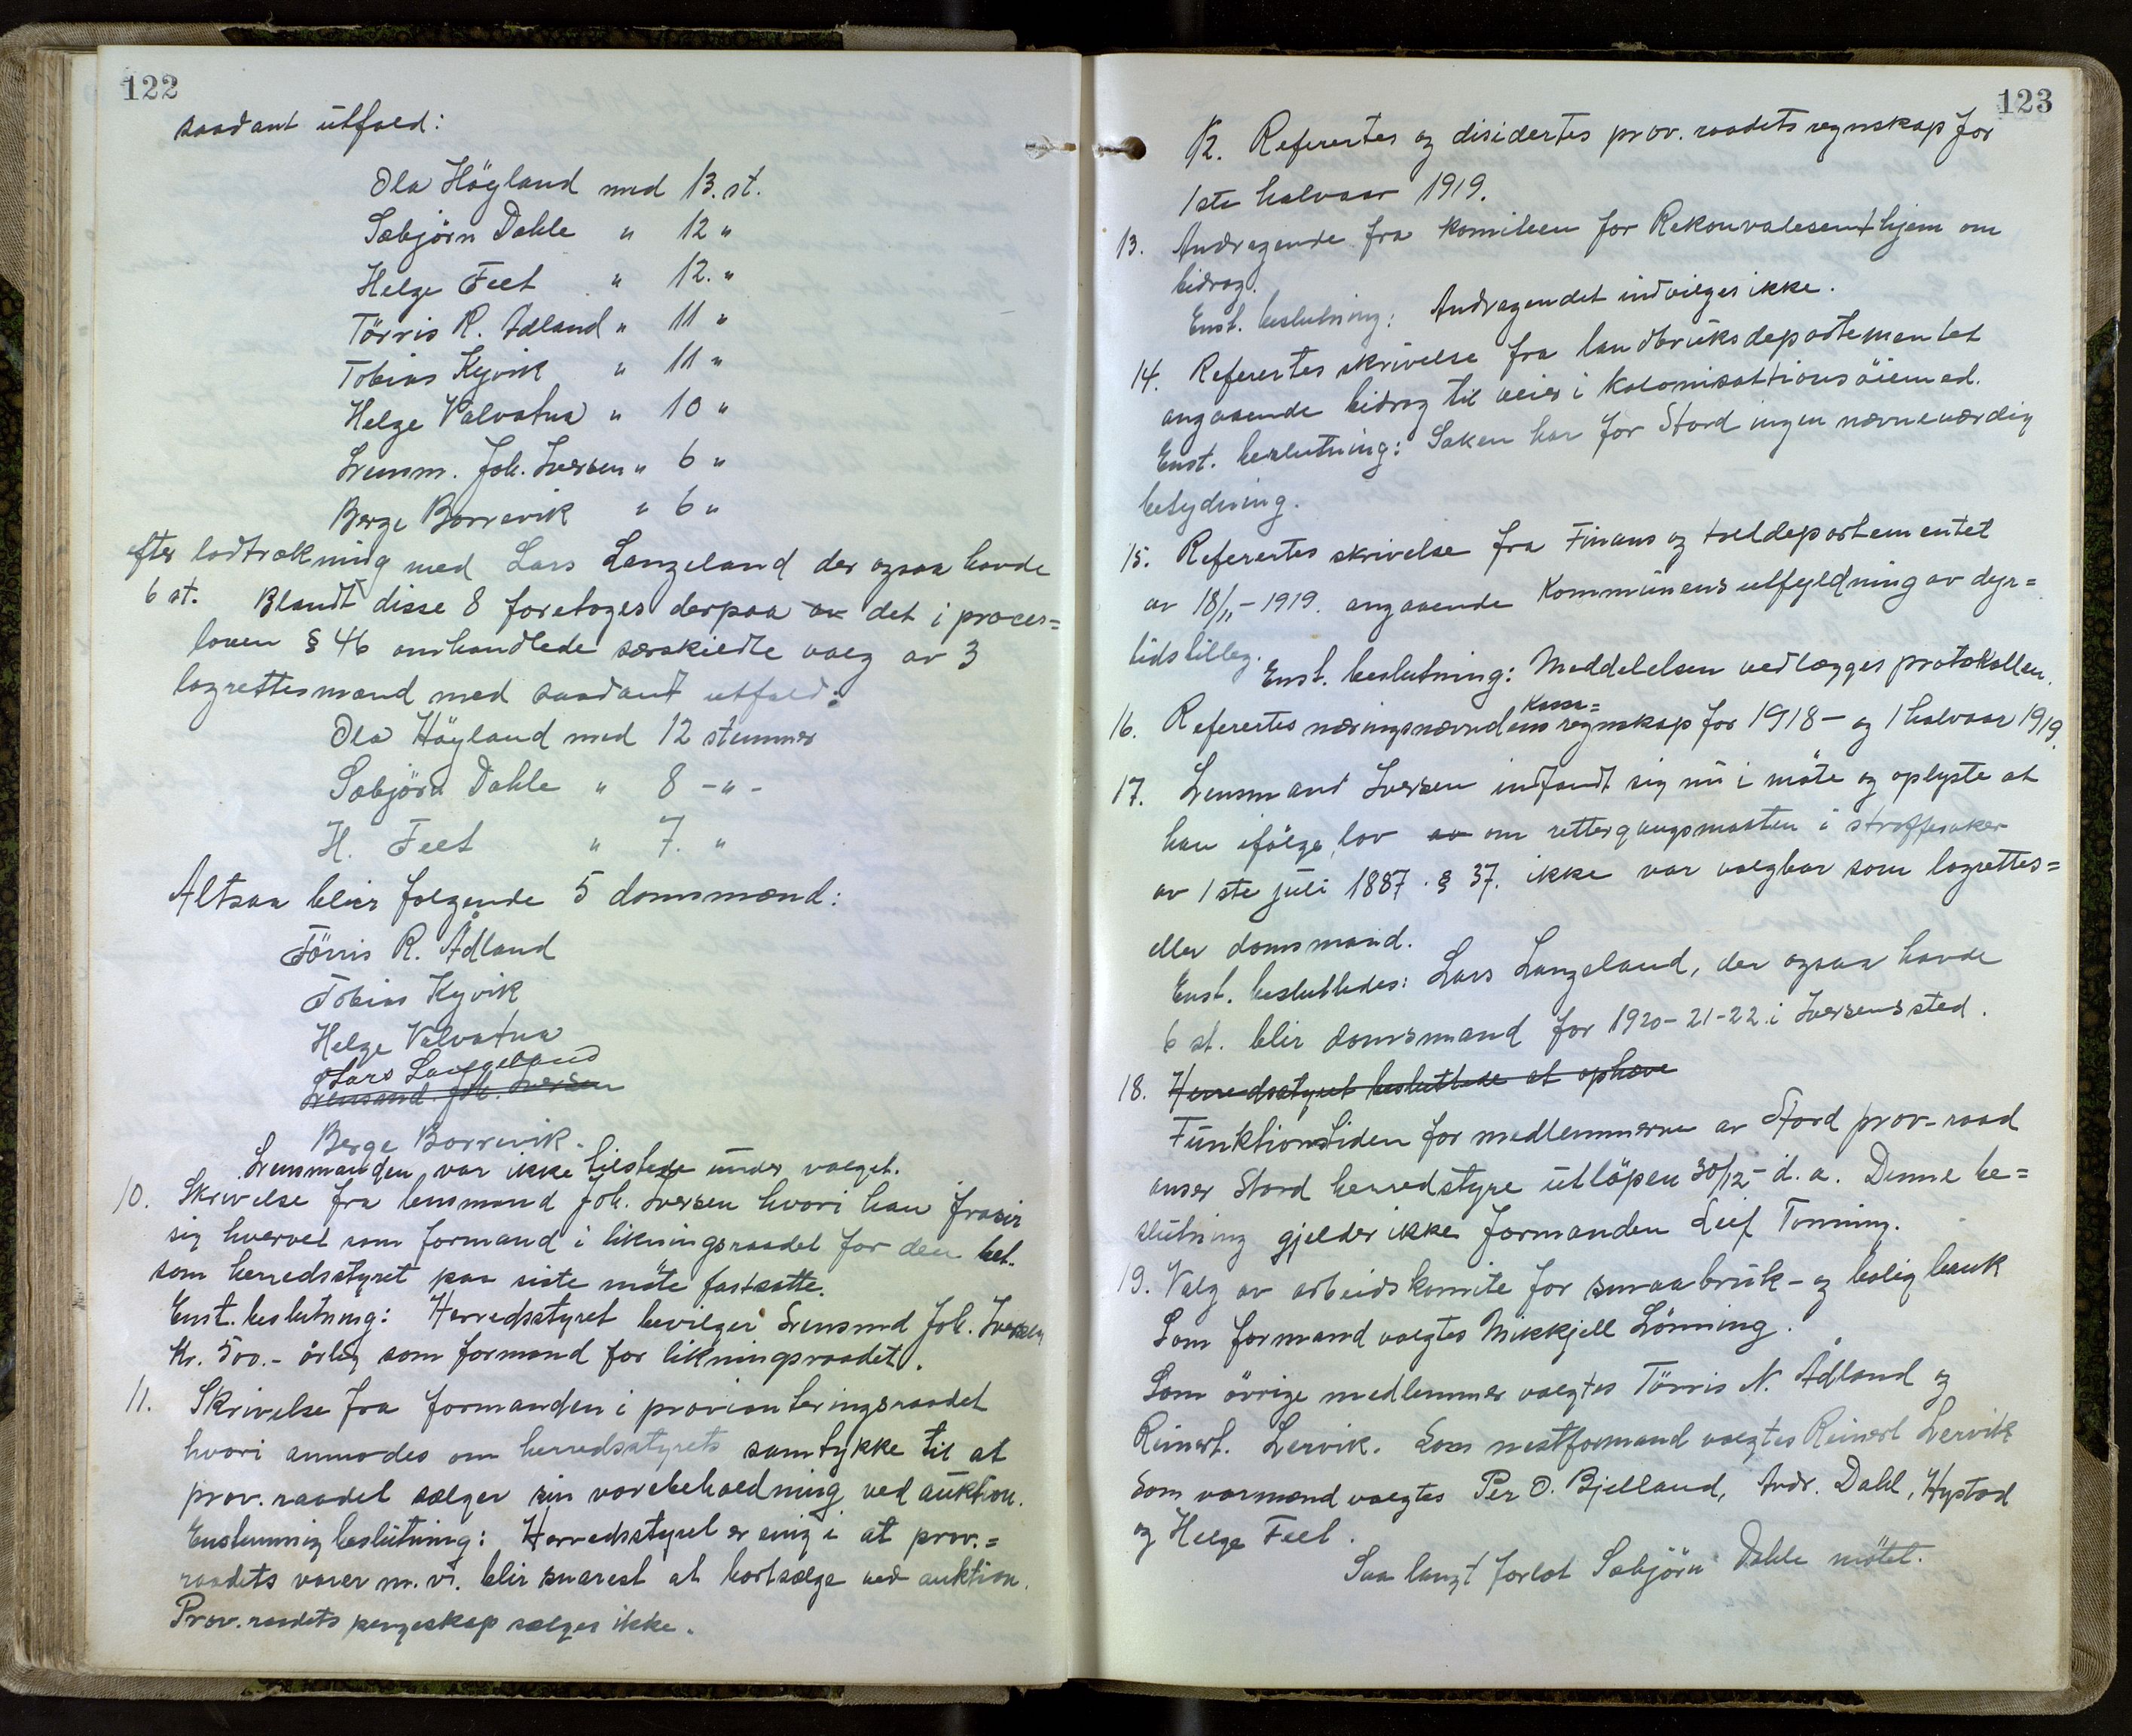 122
saadant utfald:
Ola Högland med 13. st.
Sæbjörn Dahle " 12 "
Helge Feet " 12. "
Törris R. Adland " 11 "
Tobias Kyvik " 11 "
Helge Valvatna " 10 "
Lensm. Joh. Iversen " 6 "
Berge Borrevik " 6 "
efter lodtrækning med Lars Langeland der ogsaa havde
6 st. Blandt disse 8 foretoges derpaa av det i proces=
loven § 46 omhandlede særskildte valg av 3
lagrettesmænd med saadant utfald:
Ola Högland med 12 stemmer
Sæbjörn Dahle " 8 - " -
H. Feet " 7. "
Altsaa blir følgende 5 domsmænd:
Törris R. Ådland
Tobias Kyvik
Helge Valvatna
Lars Langeland
Lensmand. Joh. Iversen
Berge Borrevik.
Lensmanden var ikke tilstede under valget.
10. Skrivelse fra lensmand Joh. Iversen hvori han frasir
sig hvervet som formand i likningsraadet for den bet.
som herredsstyret paa siste möte fastsatte.
Enst. beslutning: Herredsstyret bevilger Lensmd Joh. Iversen
Kr. 500.- årlig som formand for likningsraadet.
11. Skrivelse fra formanden i provianteringsraadet
hvori anmodes om herredsstyrets samtykke til at
prov. raadet sælger sin varebeholdning ved auktion.
Enstemmig beslutning: Herredsstyret er enig i at prov.=
raadets varer m. v. blir snarest at bortsælge ved auktion.
Prov. raadets pengeskap sælges ikke.
123
12. Refertes og disidertes prov. raadets regnskap for
1ste halvaar 1919.
13. Andragende fra komiteen for Rekonvalesenthjem om
bidrag.
Enst. beslutning: Andragendet indvilges ikke.
14. Refertes skrivelse fra landbruksdepartementet
angaaende bidrag til veier i kolonisattionsöiemed.
Enst. beslutning: Saken har for Stord ingen nævneværdig
betydning.
15. Refertes skrivelse fra Finans og tolldepartementet
av 18/11 - 1919. angaaende Kommunens utfyldning av dyr=
tidstilleg.
Enst. beslutning: Meddelelsen vedlægges protokollen.
Kasse=
16. Refertes næringsnævndens regnskap for 1918 - og 1 halvaar 1919.
17. Lensmand Iversen indfandt sig nu i möte og oplyste at
han ifölge lov av om rettergangsmaaten i straffesaker
av 1ste juli 1887. § 37. ikke var valgbar som lagrettes=
eller domsmand.
Enst. beslutledes: Lars Langeland, der ogsaa havde
6 st. blir domsmand for 1920-21-22 i Iversens sted.
18. Herredsstyret besluttede at ophæve
Funktionstiden for medlemmerne av Stord prov-raad
anser Stord herredstyre utlöpen 30/12 - d. a. Denne be=
slutning gjelder ikke formanden Leif Tonning.
19. Valg av arbeidskomite for smaabruk - og bolig bank
Som formand valgtes Mikkjell Lönning.
Som övrige medlemmer valgtes Törris N. Ådland og
Reinert. Lervik. Som nestformand valgtes Reinert Lervik
Som varmænd valgtes Per O. Bjelland, Andr. Dahl, Hystad
og Helge Feet.
Saa langt forlot Sæbjörn Dahle mötet.